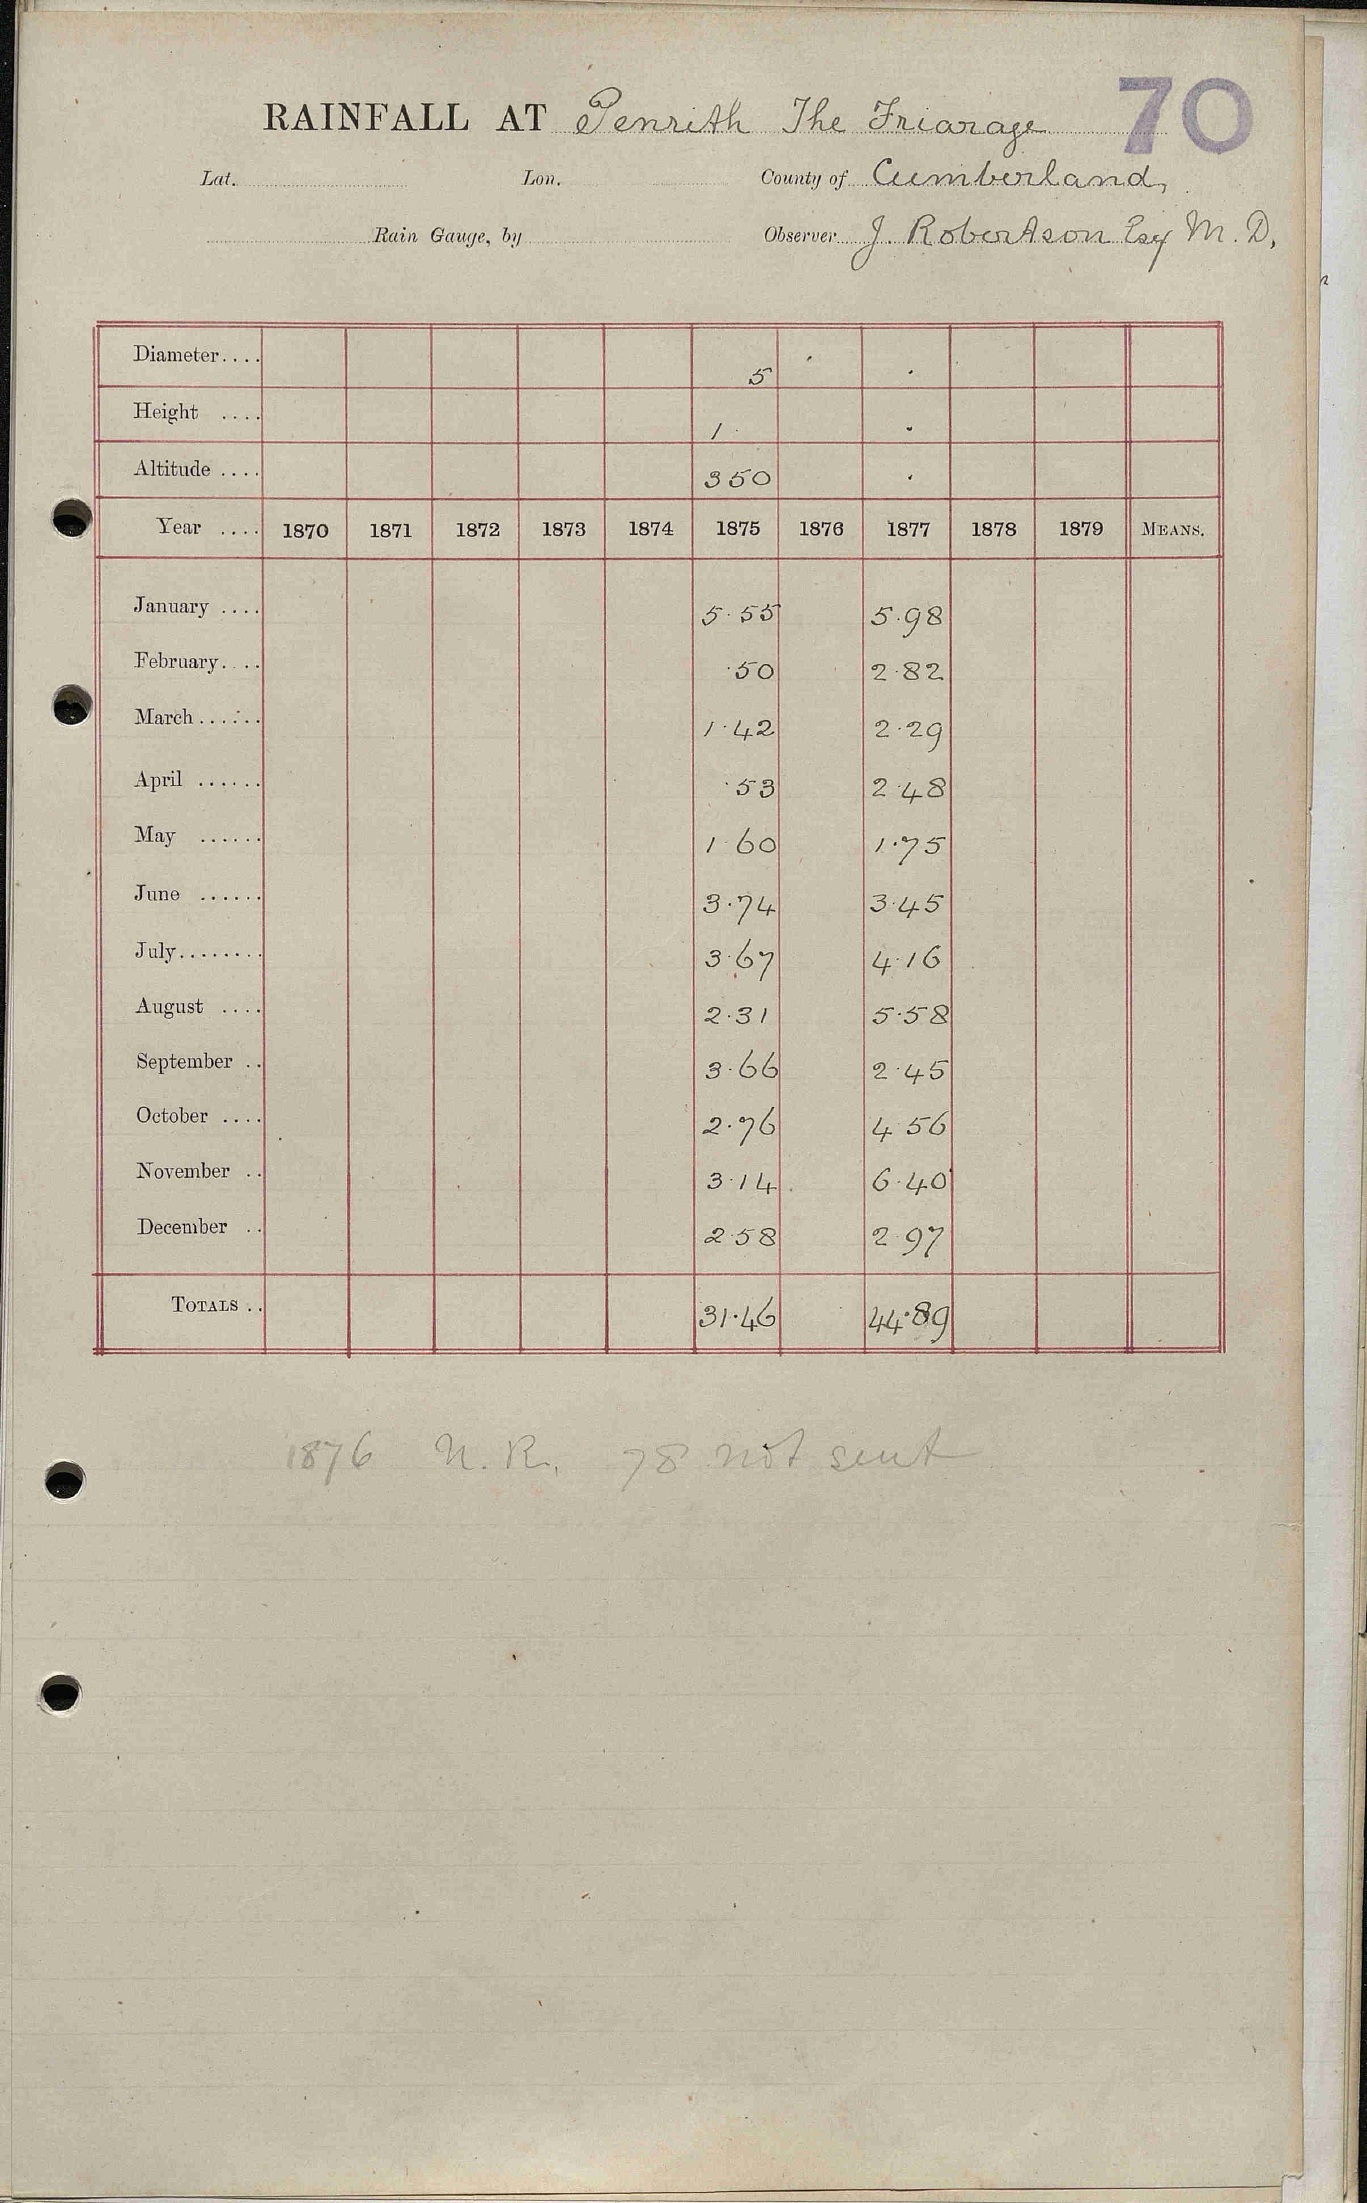 70
RAINFALL AT Penrith The Friarage
Lat. Lon. County of Cumberland,
Rain Gauge, by Observer J. Robertson Esq M.D.
Diameter.... 5 . .
Height .... 1 .
Altitude .... 350 .
Year .... 1870 1871 1872 1873 1874 1875 1876 1877 1878 1879 MEANS.
January .... 5.55 5.98
February.... .50 2.82
March...... 1.42 2.29
April ...... .53 2.48
May ...... 1.60 1.75
June ...... 3.74 3.45
July........ 3.67 4.16
August .... 2.31 5.58
September .. 3.66 2.45
October .... 2.76 4.56
November .. 3.14 6.40
December .. 2.58 2.97
TOTALS .. 31.46 44.89
1876 N.R. 78 not sent